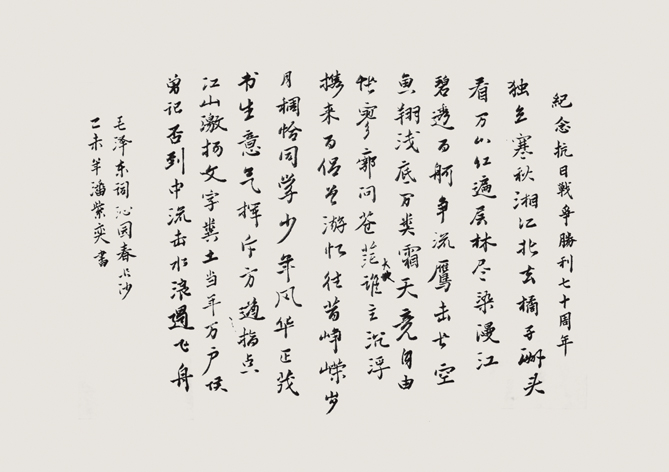 紀念抗日戰爭勝利七十周年
独立寒秋湘江北去橘子洲头
看万山红遍层林尽染漫江
碧透百舸争流鹰击长空
魚翔浅底万类霜天竞自由
怅寥廓问苍茫大地谁主沉浮
携来百侣曾游忆往昔峥嵘岁
月稠恰同学少年风华正茂
书生意气挥斥方遒指点
江山激扬文字粪土当年万户侯
曾记否到中流击水浪遏飞舟
毛泽东词沁园春长沙
乙未年潘紫奕書